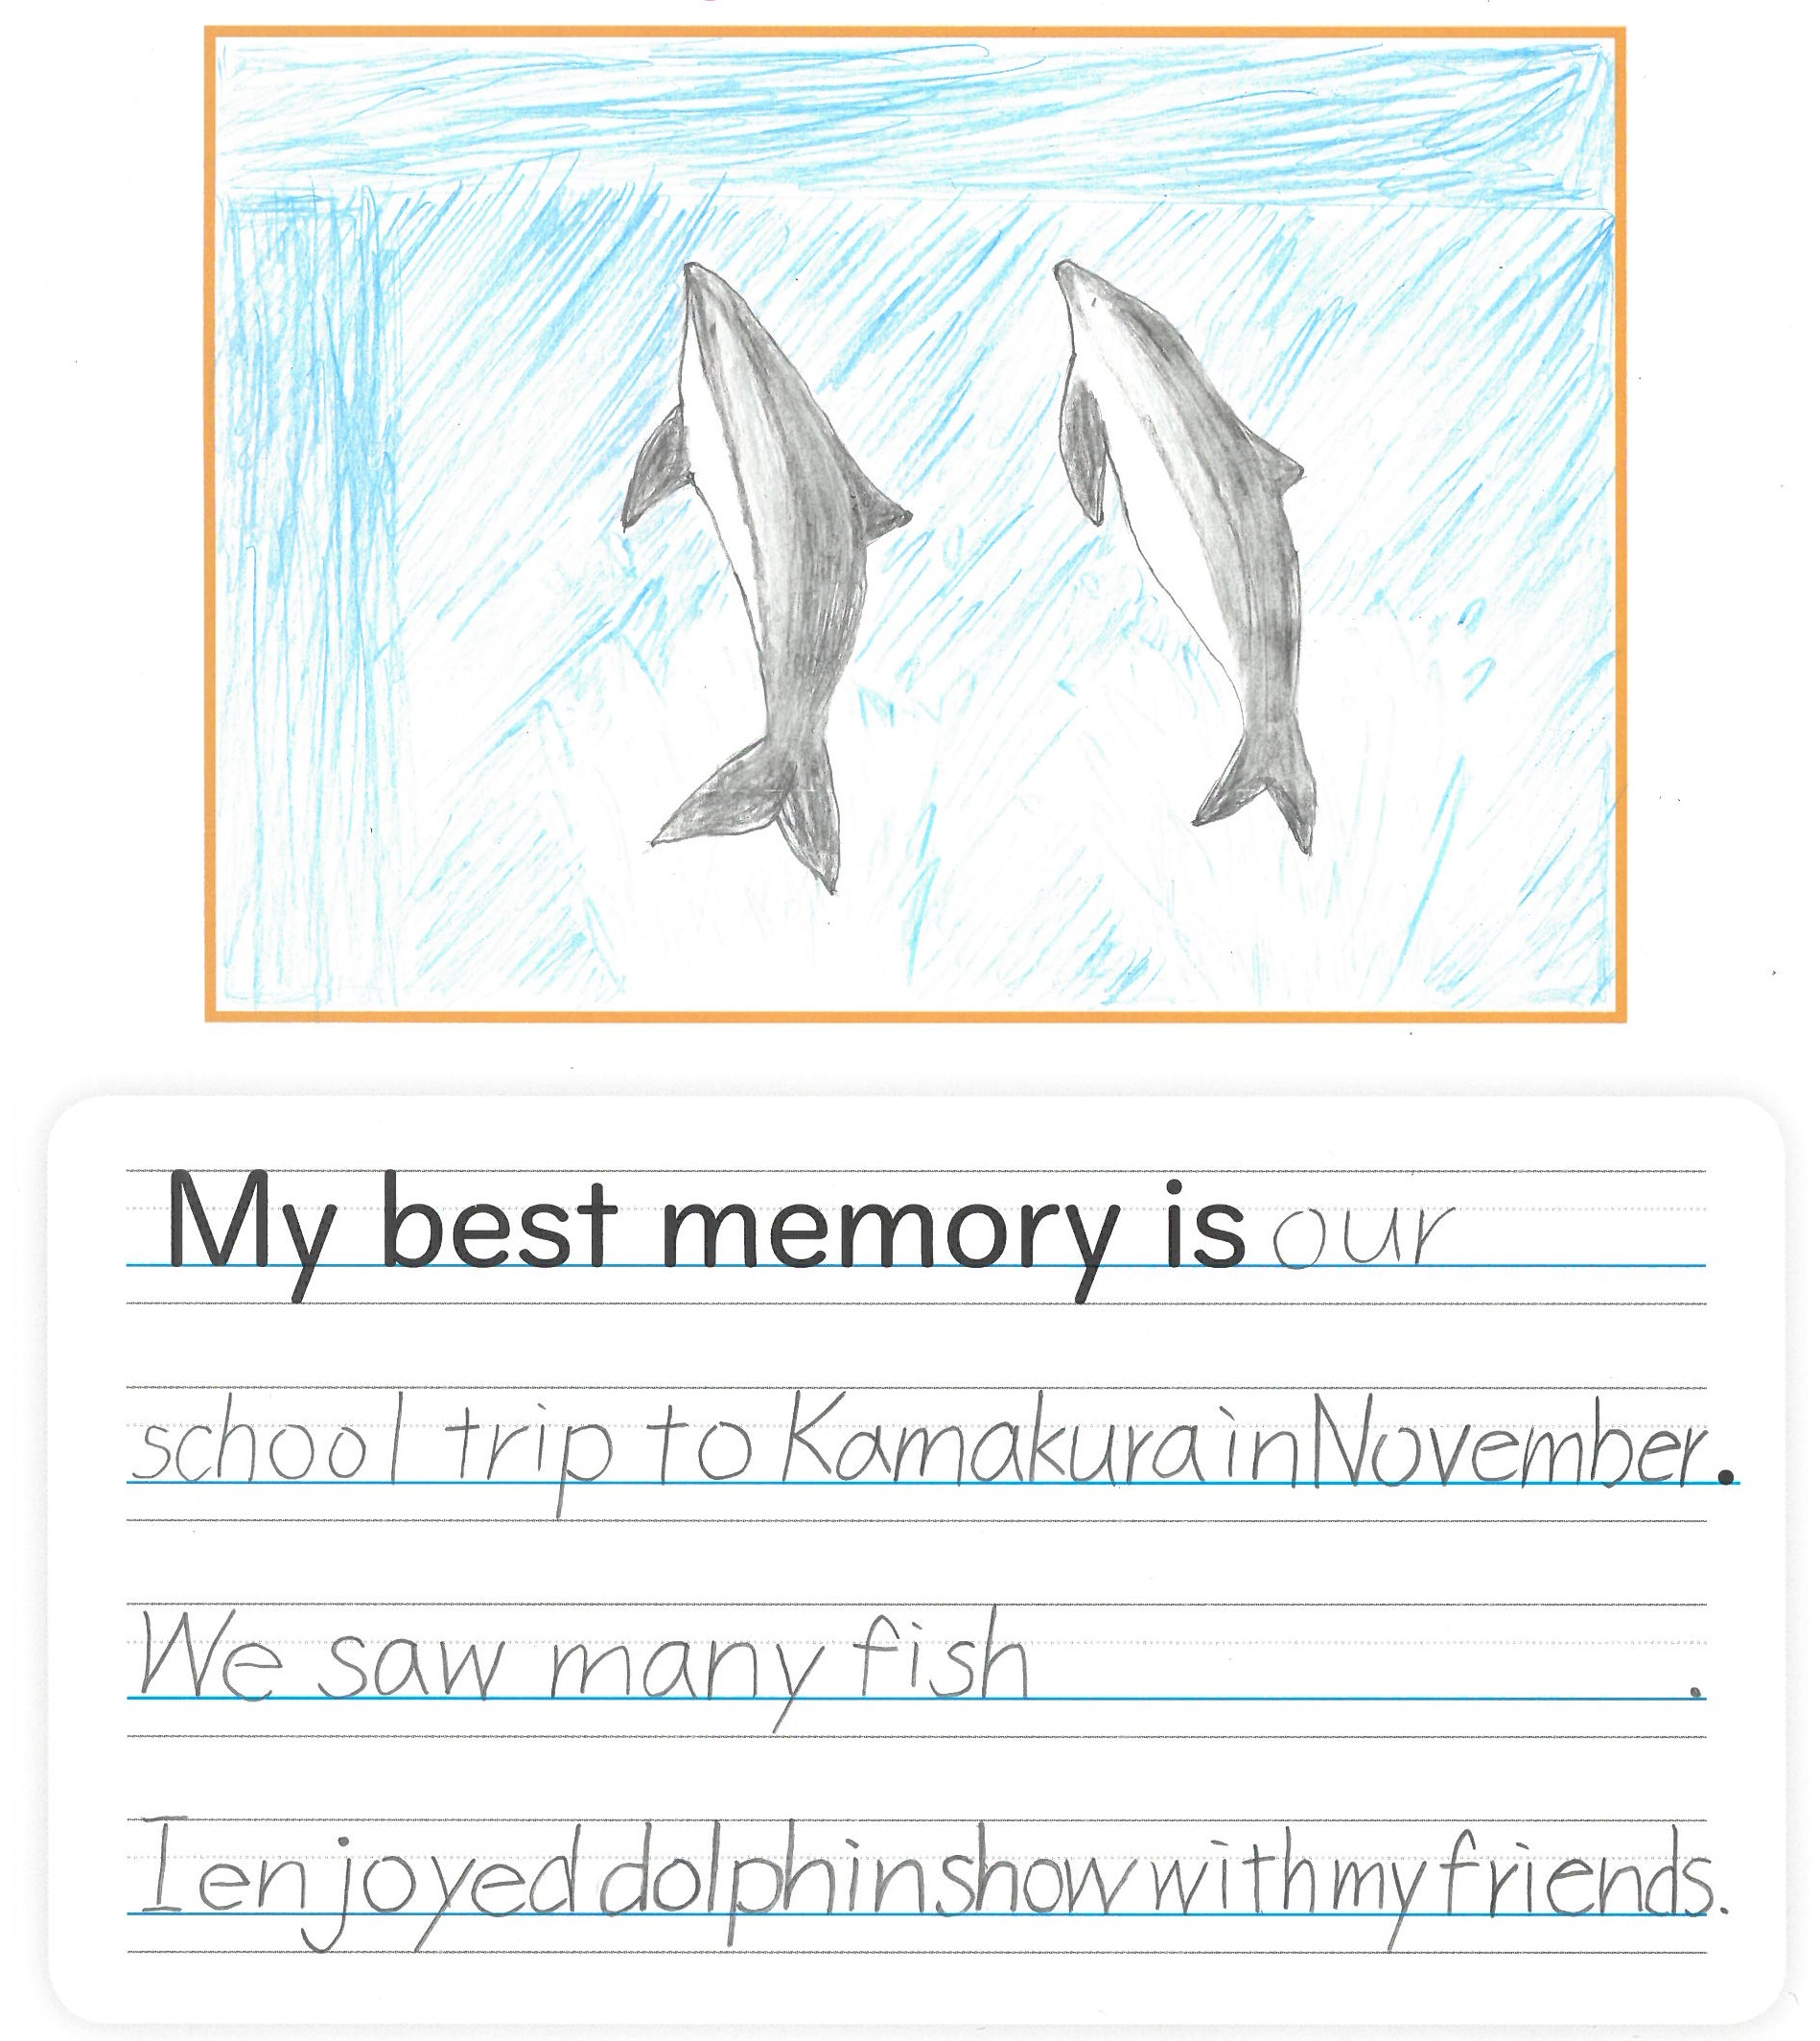 My best memory is our
school trip to Kamakura in November.
We saw many fish .
I enjoyed dolphin show with my friends.